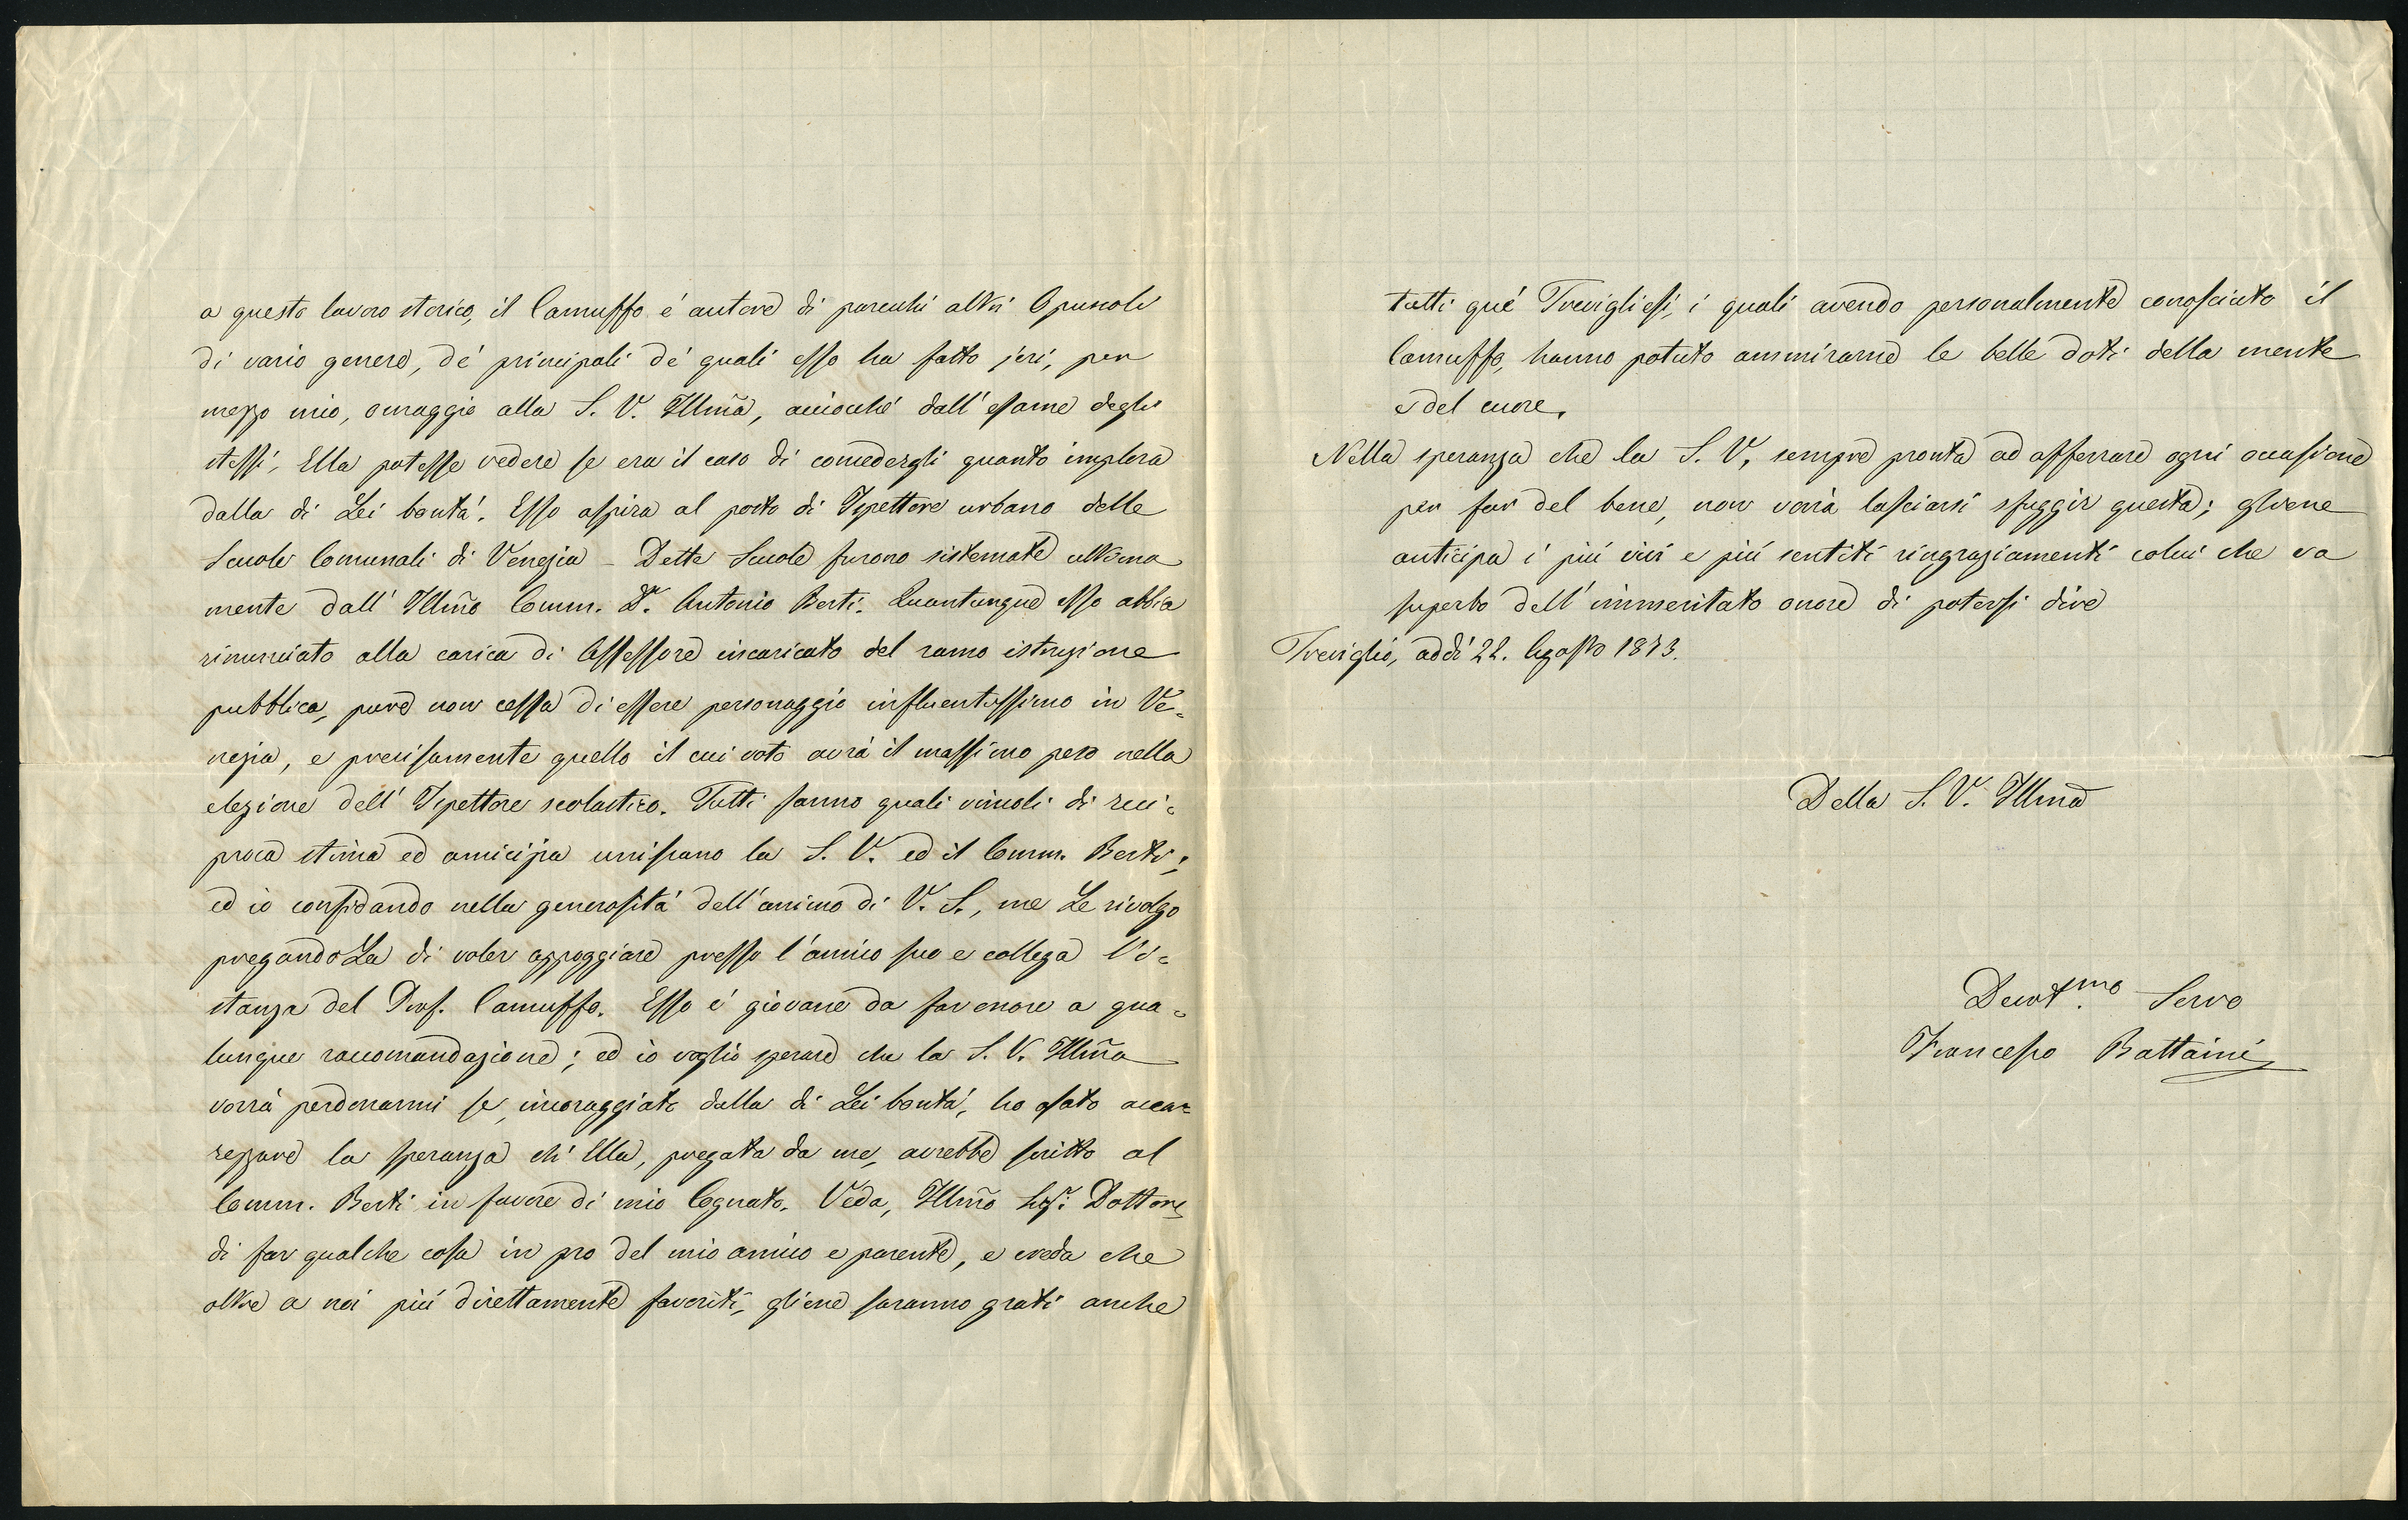 a questo lavoro storico, il Camuffo é autore di parecchi altri Opuscoli
di vario genere, de' principali de' quali esso ha fatto jeri, per
mezzo mio, omaggio alla S. V. Illma, acciocché dall'esame degli
stessi, Ella potesse vedere se era il caso di concedergli quanto implora
dalla di Lei bontá. Esso aspira al posto di Ispettore urbano delle
Scuole Comunali di Venezia – Dette Scuole furono sistemate ultima
mente dall' Illmo Comm. Dr. Antonio Berti. Quantunque esso abbia
rinunciato alla carica di Assessore incaricato del ramo istruzione
pubblica, pure non cessa di essere personaggio influentissimo in Ve=
nezia, e precisamente quello il cui voto avrà il massimo peso nella
elezione dell' Ispettore scolastico. Tutti sanno quali vincoli di reci=
proca stima ed amicizia uniscano la S. V. ed il Comm. Berti;
ed io confidando nella generositá dell'animo di V. S., me Le rivolgo
pregandoLa di voler appoggiare presso l'amico suo e collega l'i=
stanza del Prof. Camuffo. Esso é giovane da far onore a qua=
lunque raccomandazione; ed io voglio sperare che la S. V. Illma
vorrà perdonarmi se, incoraggiato dalla di Lei bontá, ho osato acca=
rezzare la speranza ch' Ella, pregata da me, avrebbe scritto al
Comm. Berti in favore di mio Cognato. Veda, Illmo Sigr. Dottore,
di far qualche cosa in pro del mio amico e parente, e creda che
oltre a noi piú direttamente favoriti, gliene saranno grati anche
tutti qué Trevigliesi, i quali avendo personalmente conosciuto il
Camuffo, hanno potuto ammirarne le belle doti della mente
e del cuore.
Nella speranza che la S. V. sempre pronta ad afferrare ogni occasione
per far del bene, non vorrà lasciarsi sfuggir questa; gliene
anticipa i piú vivi e piú sentiti ringraziamenti colui che va
superbo dell'immeritato onore di potersi dire
Treviglio, addí 22. Agosto 1873.
Della S. V. Illma
Devotmo. Servo
Francesco Battaini